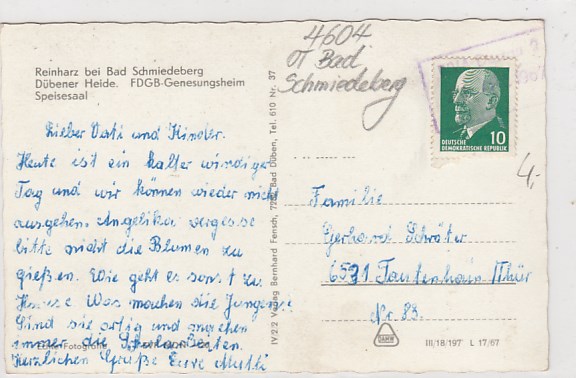 Reinharz bei Bad Schmiedeberg
Dübener Heide. FDGB-Genesungsheim
Speisesaal
4604
OT Bad
Schmiedeberg
DEUTSCHE
DEMOKRATISCHE REPUBLIK
10
4,-
Lieber Vati und Kinder.
Heute ist ein kalter windiger
Tag und wir können wieder nicht
ausgehen. Angelika vergesse
bitte nicht die Blumen zu
gießen. Wie geht es sonst zu
Hause Was machen die Jungens
Sind sie artig und machen
immer die Schularbeiten.
Herzlichen Grüße Eure Mutti
IV/2.2 Verlag Bernhard Fensch, 728 Bad Düben, Tel. 610 Nr. 37
Familie
Gerhard Schröter
6531 Tautenhain Thür
Nr. 83.
III/18/197 L 17/67